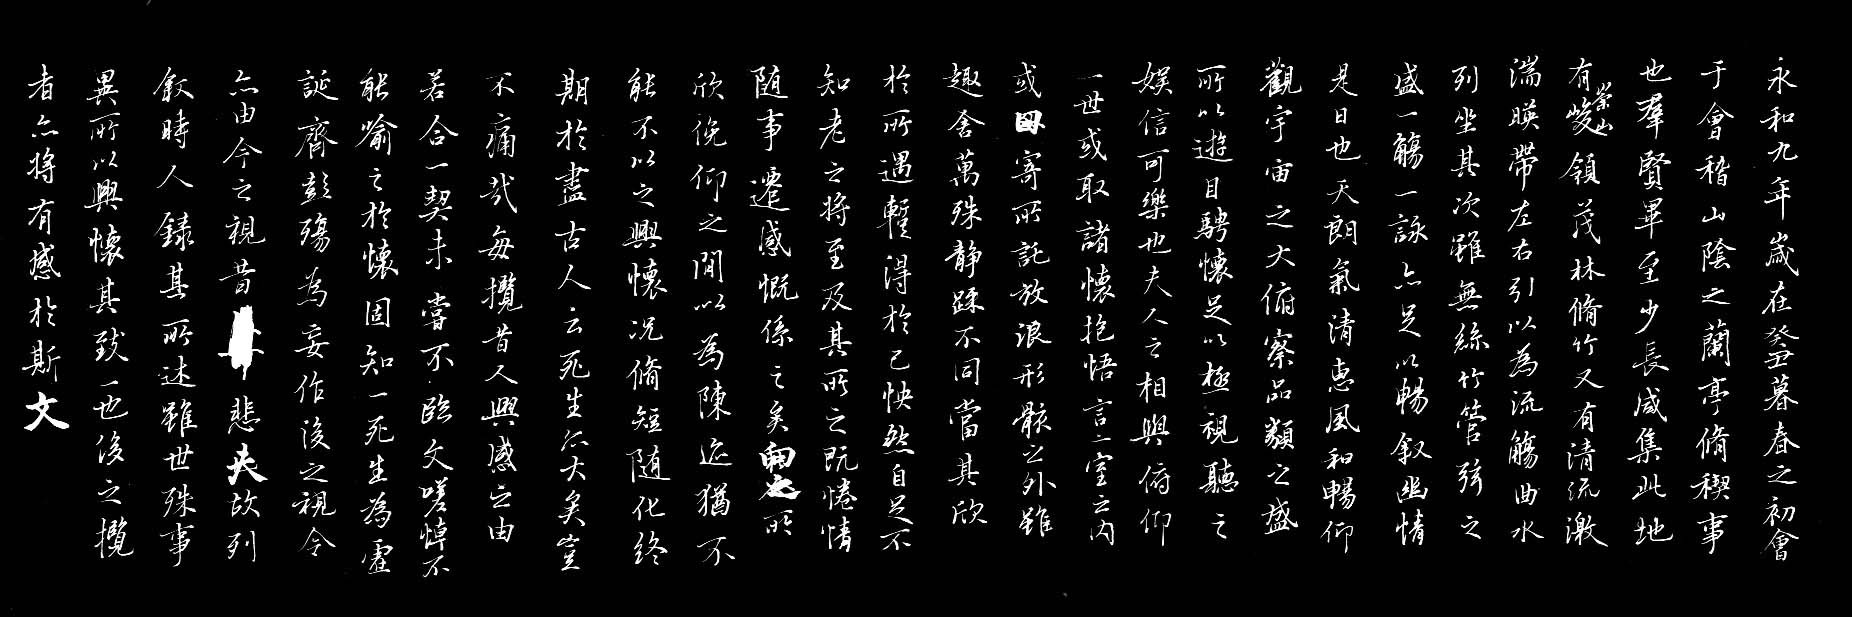 永和九年歲在癸丑暮春之初會
于會稽山陰之蘭亭脩稧事
也羣賢畢至少長咸集此地
有崇山峻領茂林脩竹又有清流激
湍暎帶左右引以為流觴曲水
列坐其次雖無絲竹管弦之
盛一觴一詠亦足以暢叙幽情
是日也天朗氣清惠風和暢仰
觀宇宙之大俯察品類之盛
所以遊目騁懷足以極視聽之
娛信可樂也夫人之相與俯仰
一世或取諸懷抱悟言一室之內
或因寄所託放浪形骸之外雖
趣舍萬殊静躁不同當其欣
於所遇暫得於己怏然自足不
知老之將至及其所之既惓情
隨事遷感慨係之矣向之所
欣俛仰之閒以為陳迹猶不
能不以之興懷況脩短隨化終
期於盡古人云死生亦大矣豈
不痛哉每攬昔人興感之由
若合一契未嘗不臨文嗟悼不
能喻之於懷固知一死生為虛
誕齊彭殤為妄作後之視今
亦由今之視昔悲夫故列
敘時人錄其所述雖世殊事
異所以興懷其致一也後之攬
者亦將有感於斯文